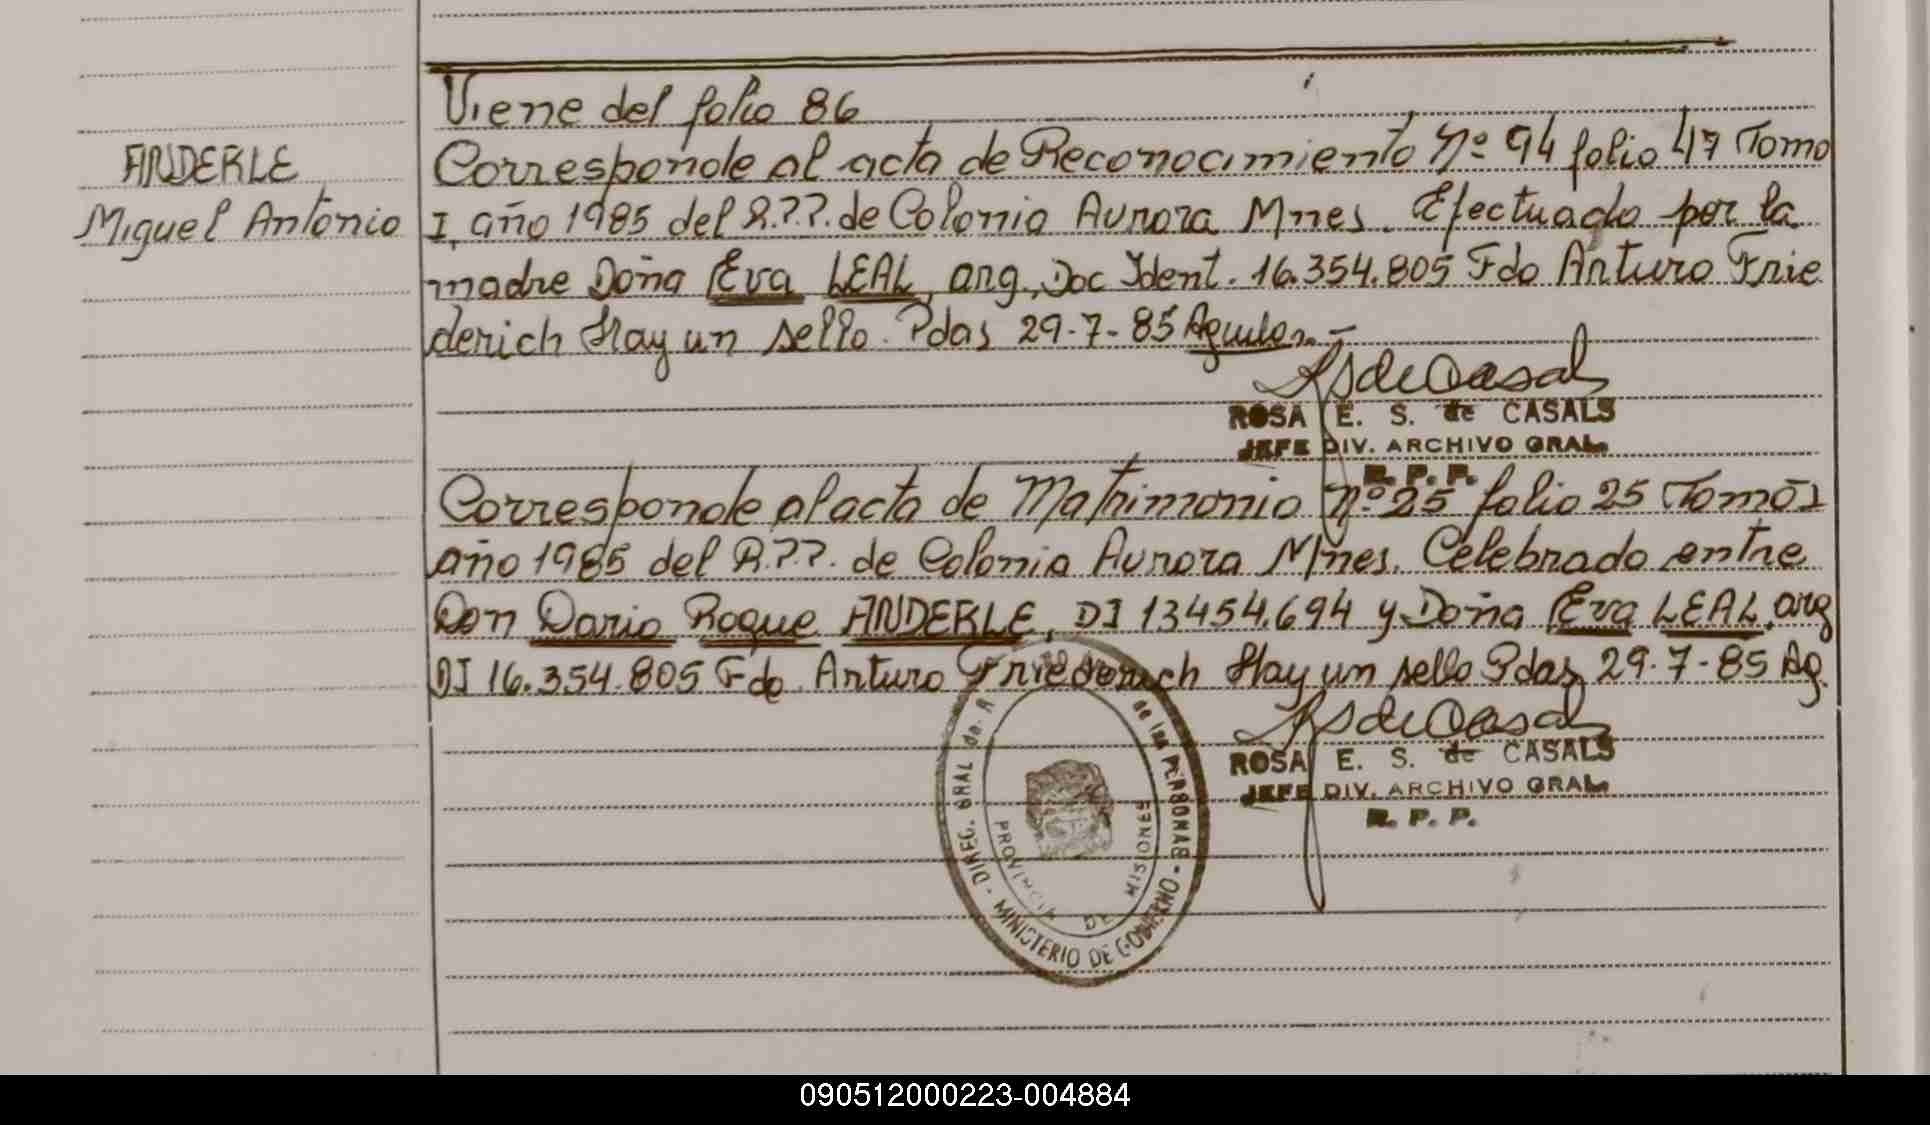 Viene del folio 86
ANDERLE
Miguel Antonio
Corresponde al acta de Reconocimiento Nº 94 folio 47 Tomo
I, año 1985 del R.P.P. de Colonia Aurora Mnes. Efectuado por la
madre Doña Eva LEAL, arg., Doc Ident. 16.354.805 Fdo Arturo Frie
derich Hay un sello. Pdas 29-7-85
ROSA E. S. de CASALS
JEFE DIV. ARCHIVO GRAL.
R. P. P.
Corresponde al acta de Matrimonio Nº 25 folio 25 Tomo I
año 1985 del R.P.P. de Colonia Aurora Mnes. Celebrado entre
Don Dario Roque ANDERLE, DI 13454.694 y Doña Eva LEAL, arg
DI 16.354.805 Fdo. Arturo Friederich Hay un sello Pdas 29-7-85 Ag.
ROSA E. S. de CASALS
JEFE DIV. ARCHIVO GRAL.
R. P. P.
DIREC. GRAL de de las PERSONAS
MINISTERIO DE GOBIERNO
PROVINCIA DE MISIONES
090512000223-004884